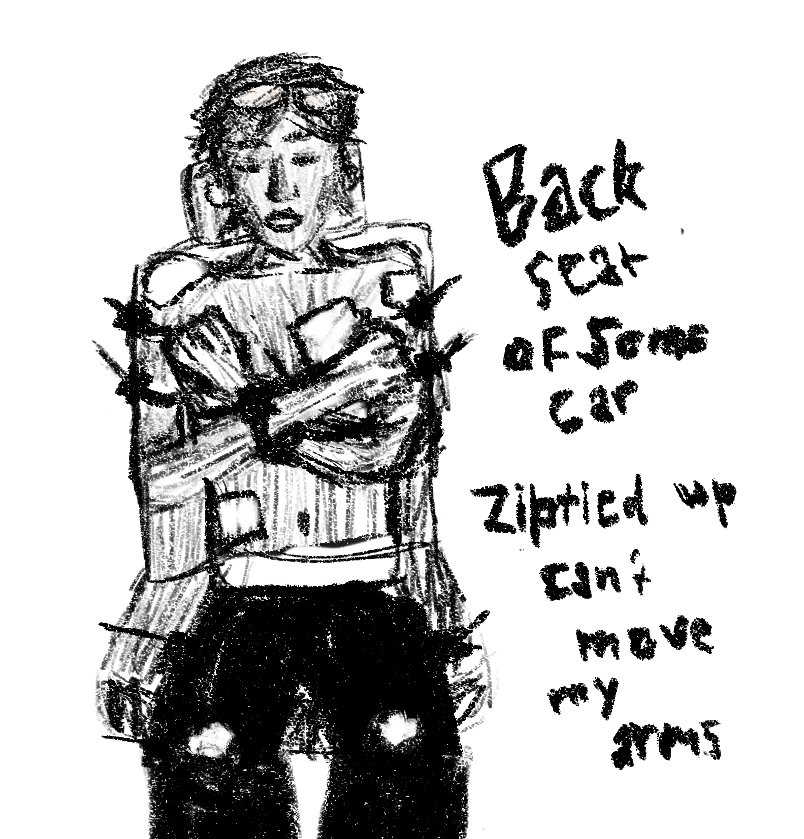 Back
seat
of some
car
Ziptied up
can't
move
my
arms